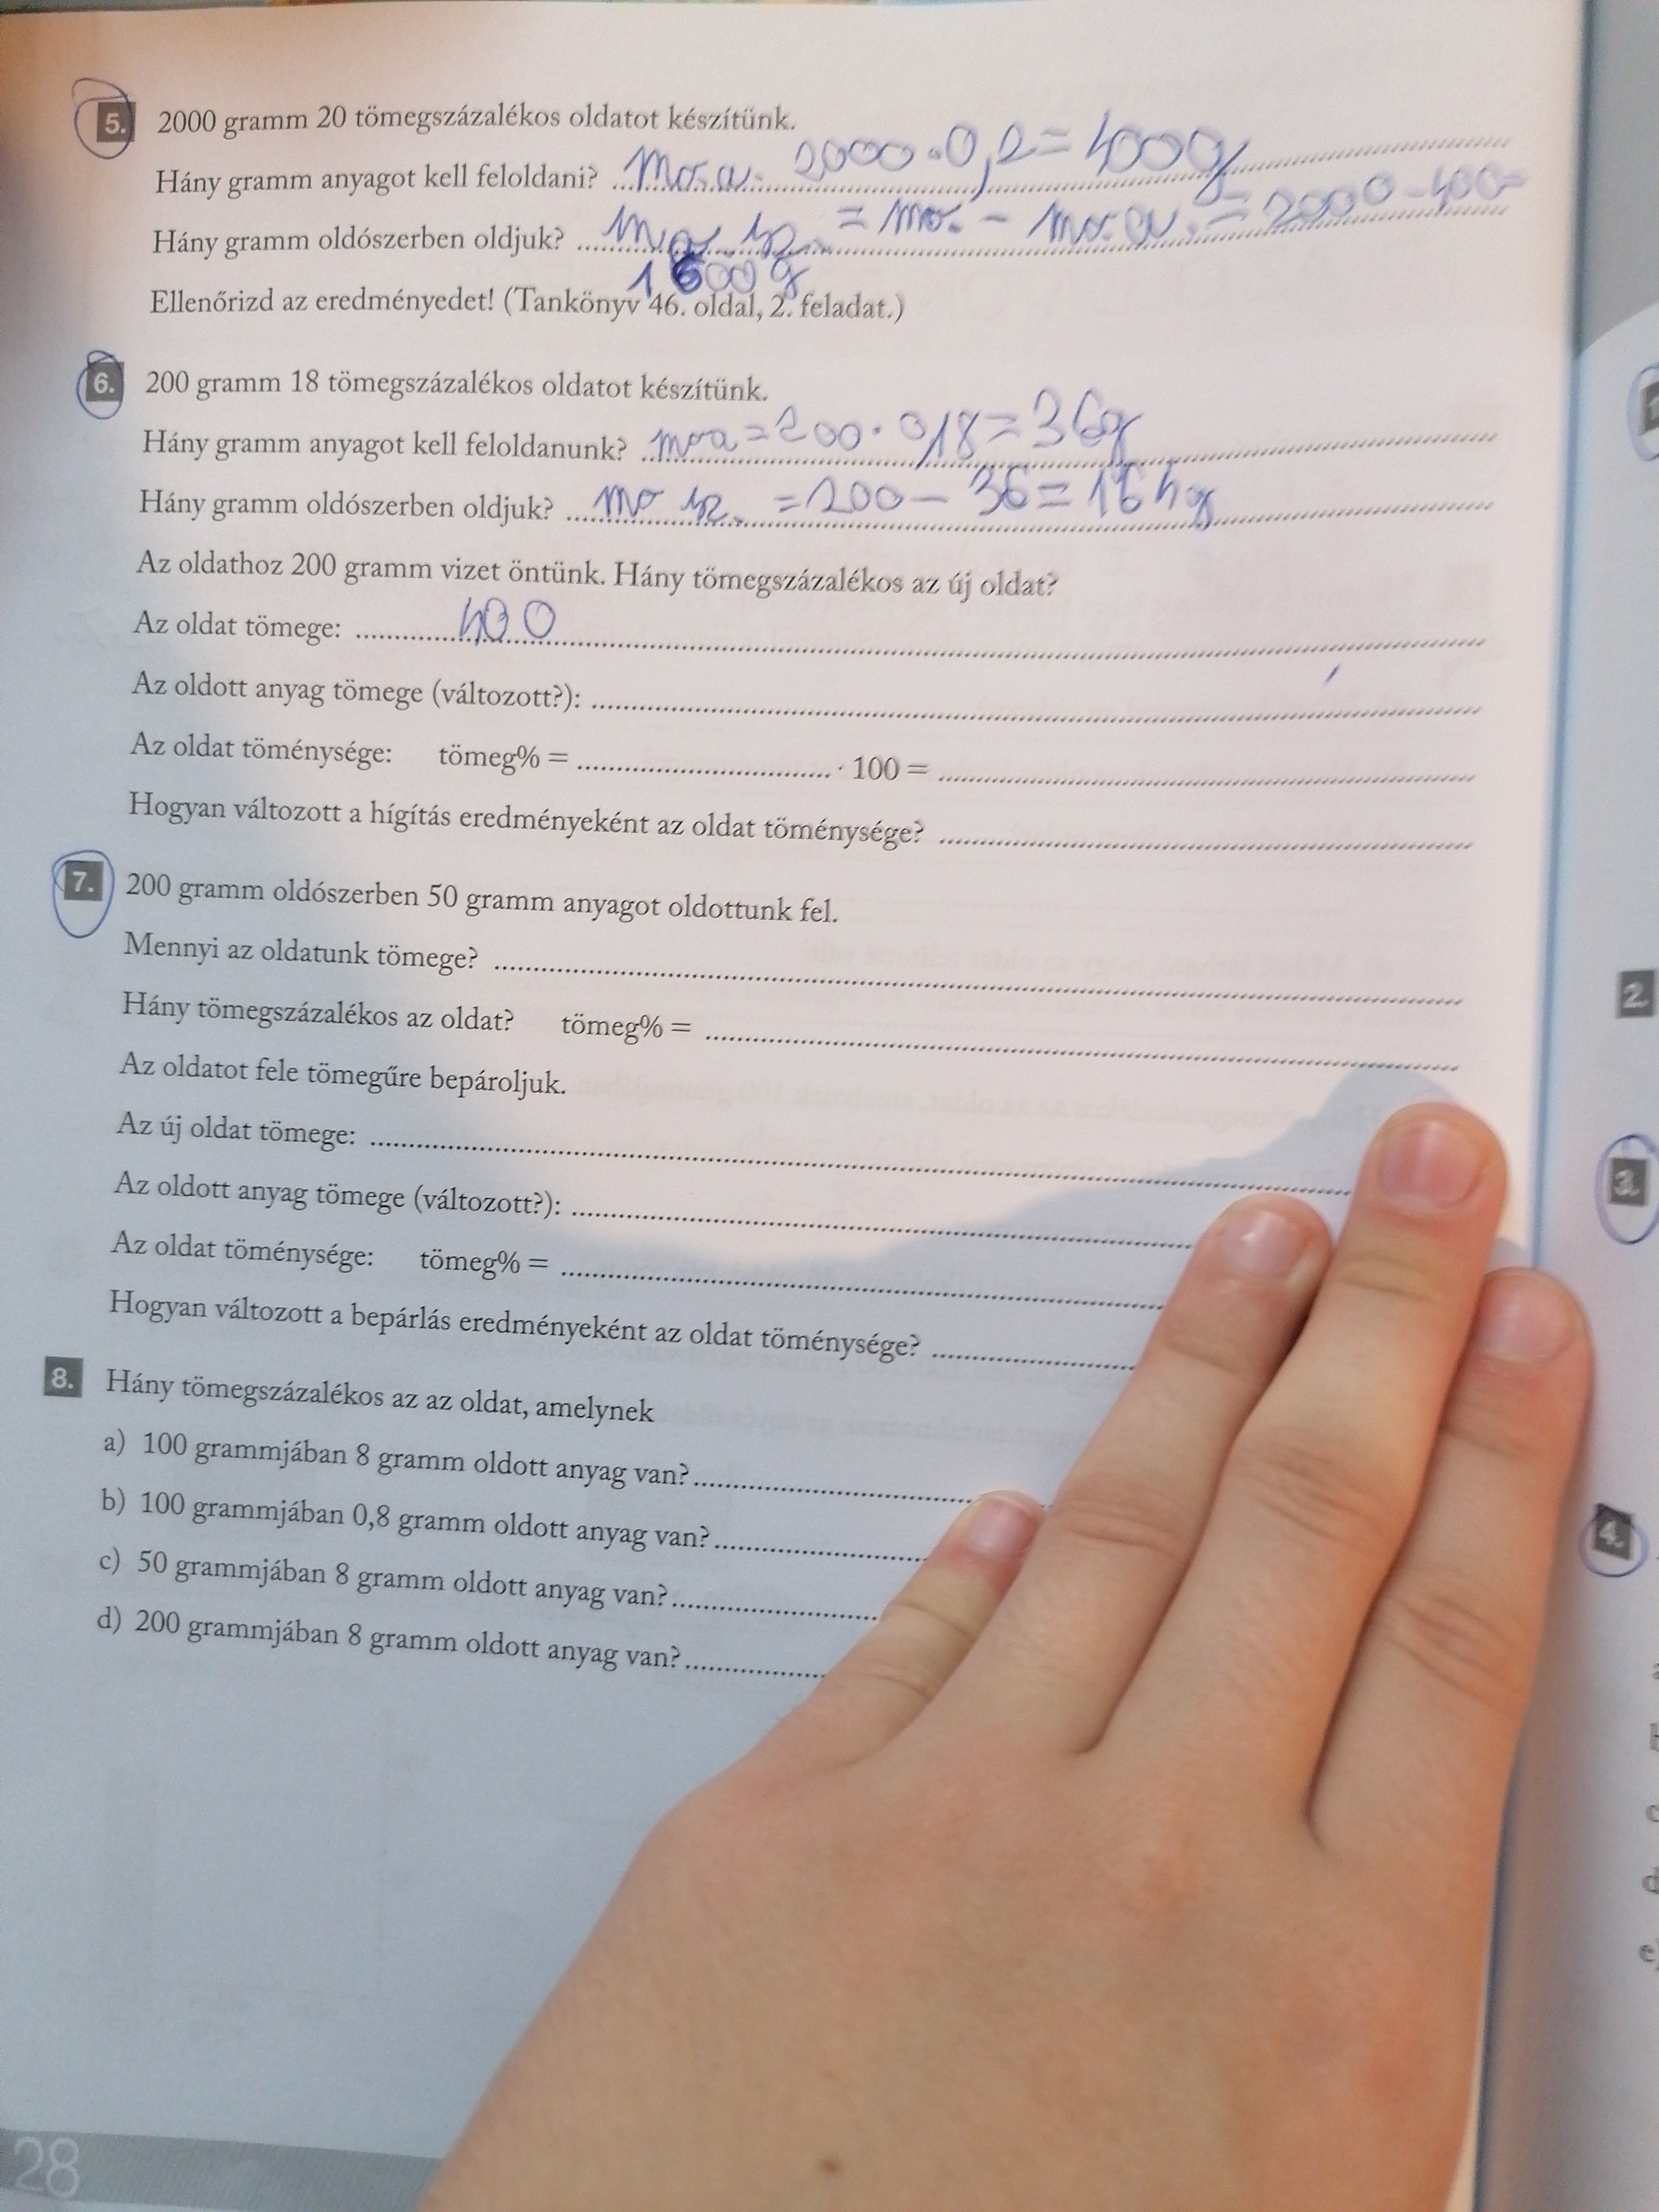 5. 2000 gramm 20 tömegszázalékos oldatot készítünk.
Hány gramm anyagot kell feloldani? mo.a. 2000·0,2=400g
Hány gramm oldószerben oldjuk? = mo. - mo.a. = 2000-400=
1600g
Ellenőrizd az eredményedet! (Tankönyv 46. oldal, 2. feladat.)
6. 200 gramm 18 tömegszázalékos oldatot készítünk.
Hány gramm anyagot kell feloldanunk? moa=200·0,18=36g
Hány gramm oldószerben oldjuk? mo sz. =200-36=164g
Az oldathoz 200 gramm vizet öntünk. Hány tömegszázalékos az új oldat?
Az oldat tömege: 400
Az oldott anyag tömege (változott?):
Az oldat töménysége: tömeg% = · 100 =
Hogyan változott a hígítás eredményeként az oldat töménysége?
7. 200 gramm oldószerben 50 gramm anyagot oldottunk fel.
Mennyi az oldatunk tömege?
Hány tömegszázalékos az oldat? tömeg% =
Az oldatot fele tömegűre bepároljuk.
Az új oldat tömege:
Az oldott anyag tömege (változott?):
Az oldat töménysége: tömeg% =
Hogyan változott a bepárlás eredményeként az oldat töménysége?
8. Hány tömegszázalékos az az oldat, amelynek
a) 100 grammjában 8 gramm oldott anyag van?
b) 100 grammjában 0,8 gramm oldott anyag van?
c) 50 grammjában 8 gramm oldott anyag van?
d) 200 grammjában 8 gramm oldott anyag van?
28
2.
3.
4.